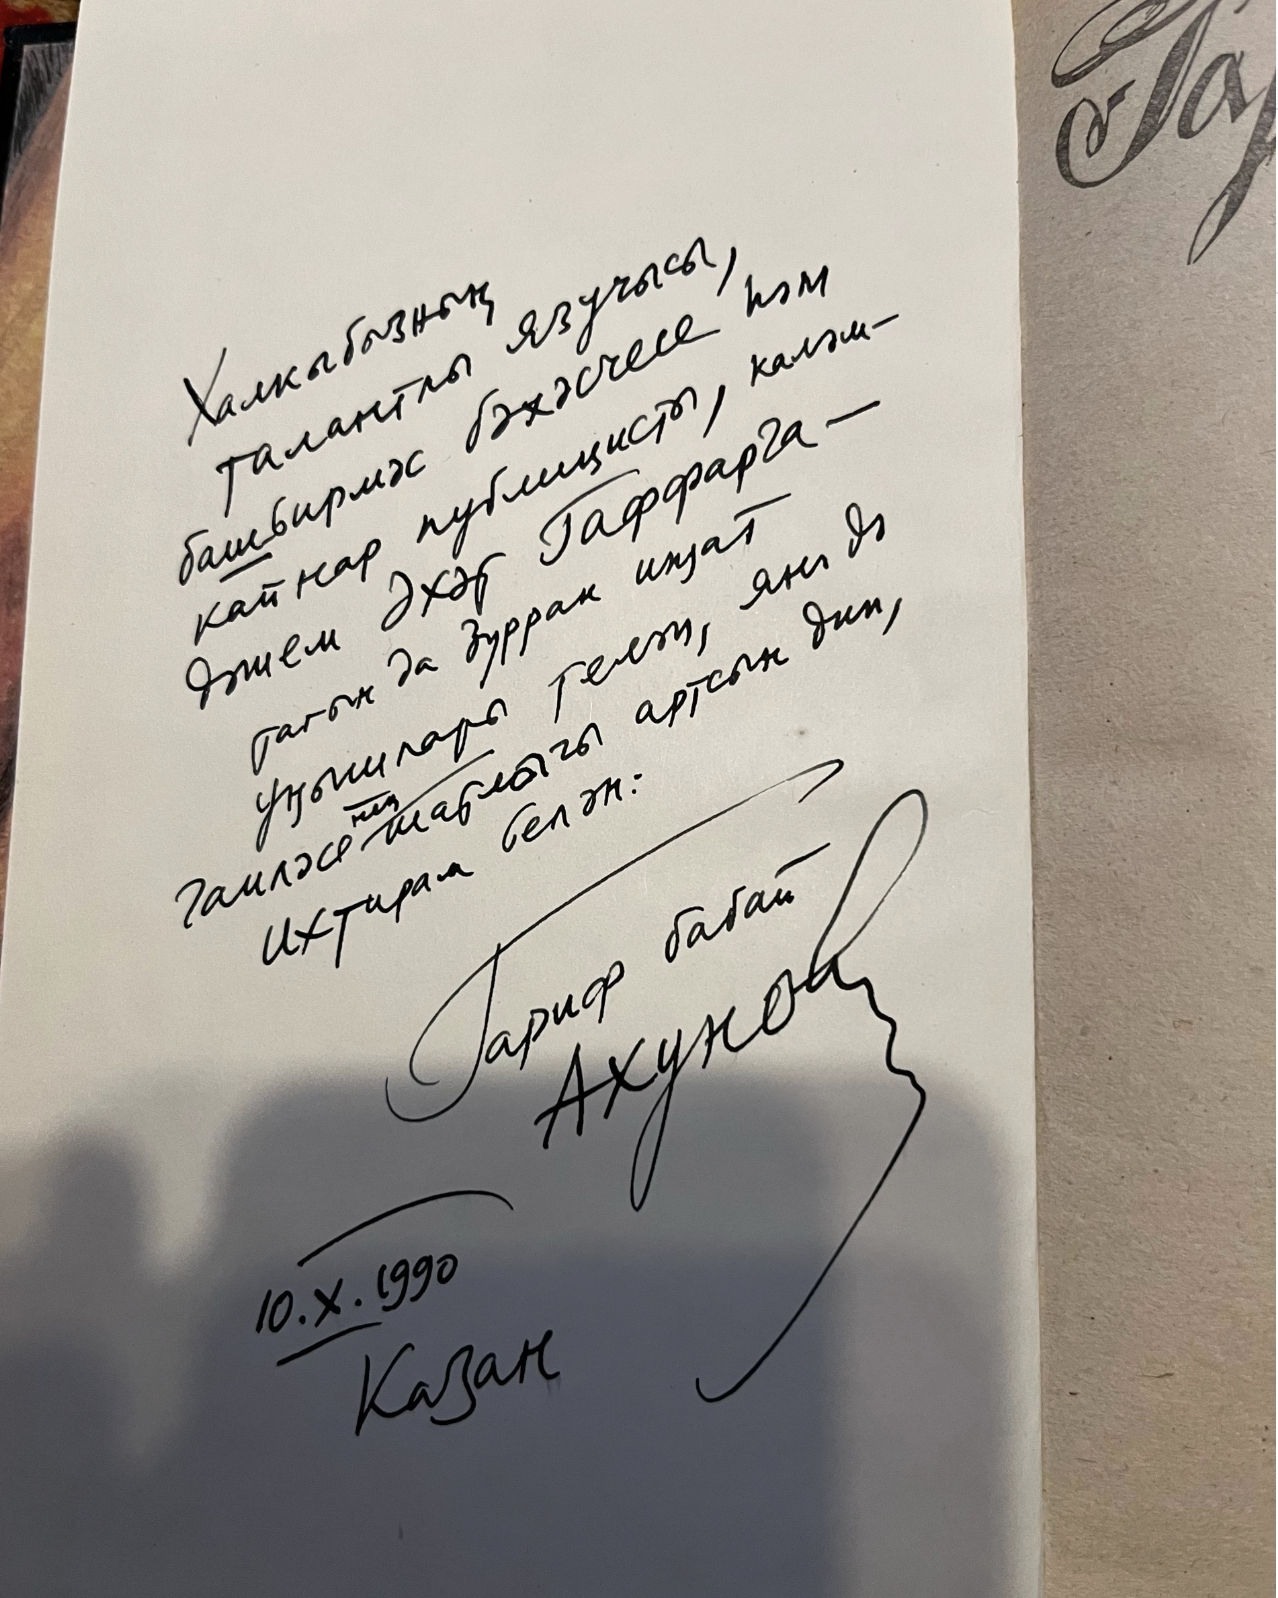 Халкыбызның
талантлы язучысы,
баш бирмәс бәхәсчесе һәм
кайнар публицисты, каләм-
дәшем Әхәт Гаффарга —
тагын да зуррак иҗат
уңышлары теләп, яңа дә
гаиләсенең шатлыгы артсын дип,
ихтирам белән:
Гариф бабай
Ахунов
10.X.1990
Казан
Га